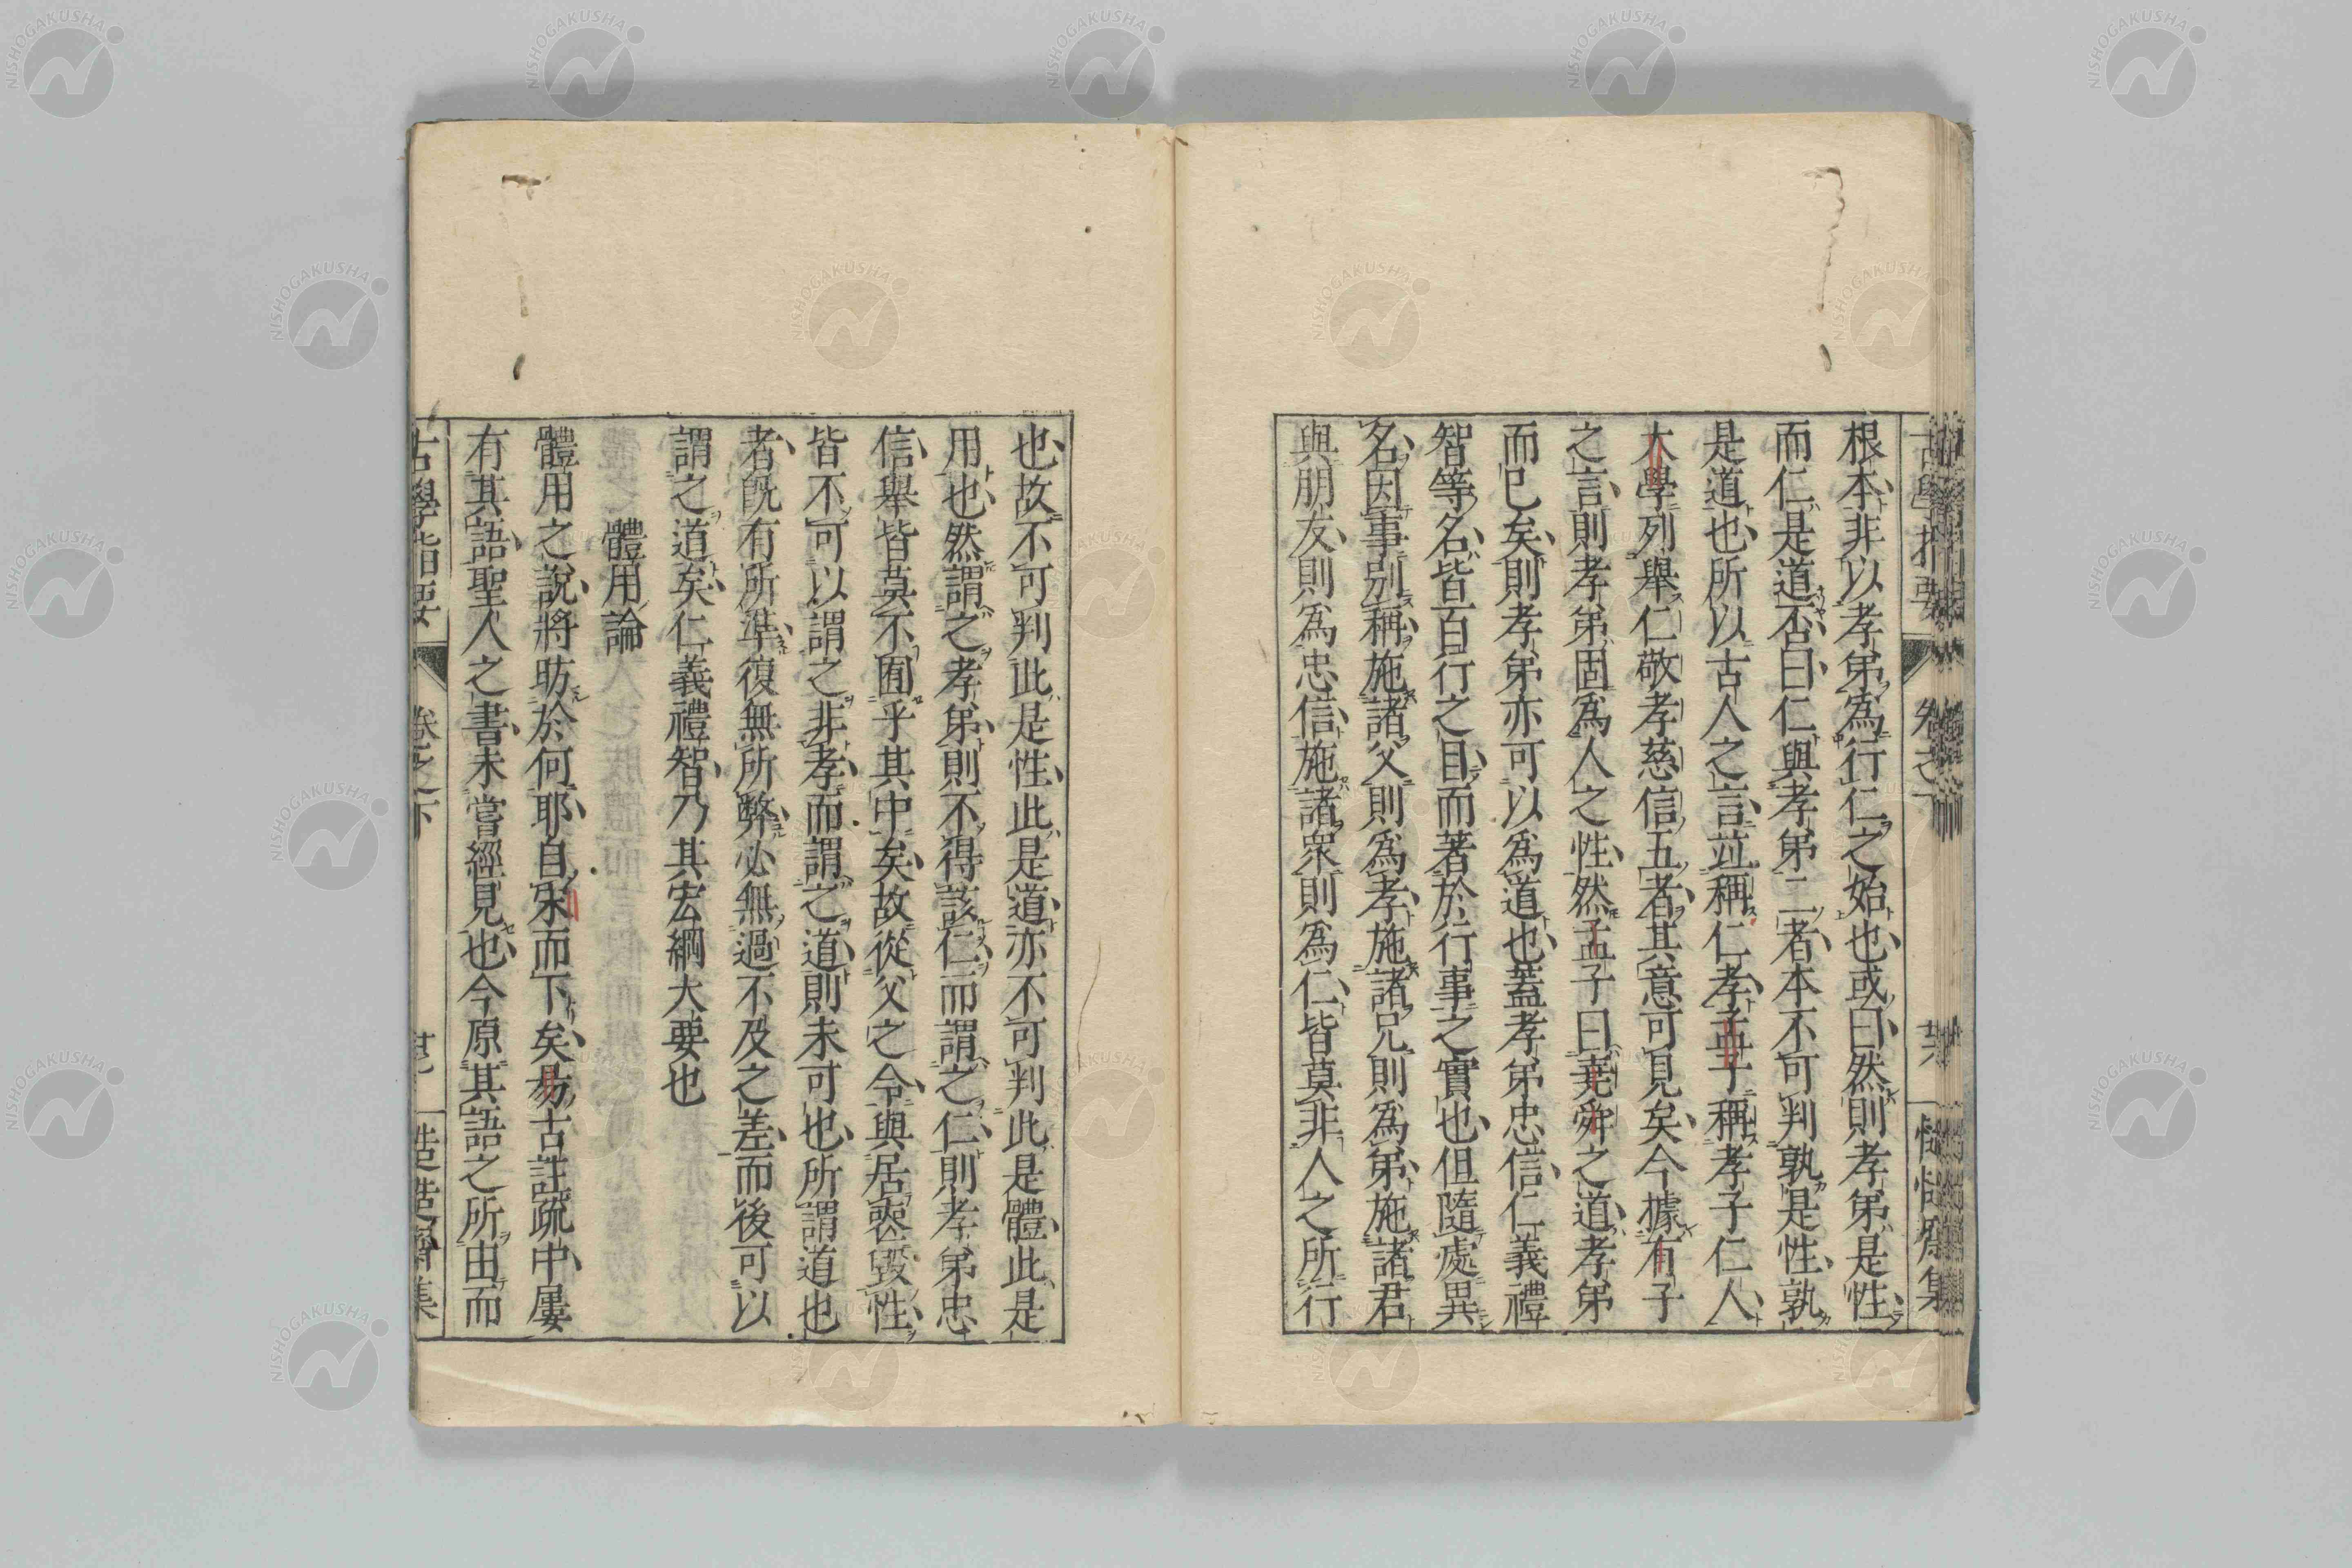 根本非以孝弟爲行仁之始也或曰然則孝弟是性
而仁是道否曰仁與孝弟二者本不可判孰是性孰
是道也所以古人之言竝稱仁孝孟子稱孝子仁人
大學列舉仁敬孝慈信五者其意可見矣今據有子
之言則孝弟固爲人之性然孟子曰堯舜之道孝弟
而已矣則孝弟亦可以爲道也蓋孝弟忠信仁義禮
智等名皆百行之目而著於行事之實也但隨處異
名因事別稱施諸父則爲孝施諸兄則爲弟施諸君
與朋友則爲忠信施諸衆則爲仁皆莫非人之所行
也故不可判此是性此是道亦不可判此是體此是
用也然謂之孝弟則不得該仁而謂之仁則孝弟忠
信舉皆莫不囿乎其中矣故從父之令與居喪毀性
皆不可以謂之非孝而謂之道則未可也所謂道也
者既有所準復無所弊必無過不及之差而後可以
謂之道矣仁義禮智乃其宏綱大要也
體用論
體用之說將昉於何耶自宋而下矣易古註疏中屢
有其語聖人之書未嘗經見也今原其語之所由而
古學指要
卷之下
造造齋集
NISHOGAKUSHA